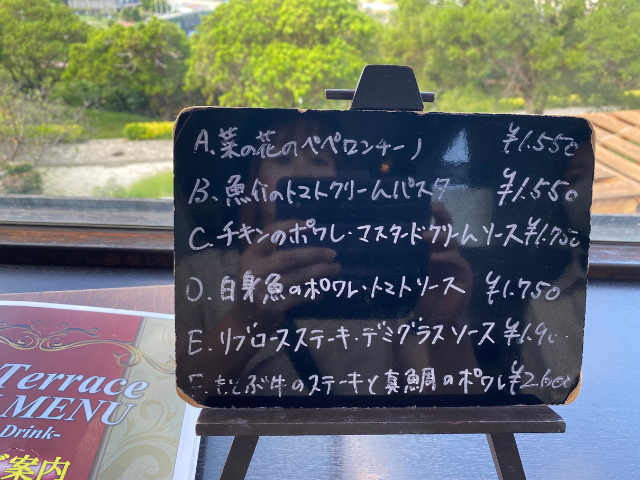 A. 菜の花のペペロンチーノ ¥1.550
B. 魚介のトマトクリームパスタ ¥1.550
C. チキンのポワレ・マスタードクリームソース ¥1.750
D. 白身魚のポワレ・トマトソース ¥1.750
E. リブロースステーキ・デミグラスソース ¥1.90
のステーキと真鯛のポワレ ¥2.600
Terrace
MENU
-Drink-
ご案内